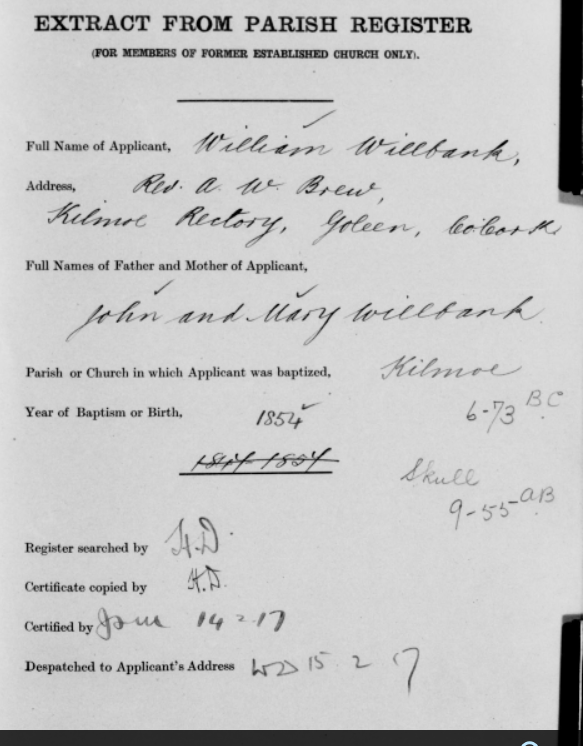 EXTRACT FROM PARISH REGISTER
(FOR MEMBERS OF FORMER ESTABLISHED CHURCH ONLY).
Full Name of Applicant, William Willbank,
Address, Rev. A. W. Brew,
Kilmoe Rectory, Goleen, Co Cork
Full Names of Father and Mother of Applicant,
John and Mary Willbank
Parish or Church in which Applicant was baptized, Kilmoe
6-73 BC
Year of Baptism or Birth, 1854
Skull
9-55 AB
Register searched by H.D.
Certificate copied by H.D.
Certified by 14 2 17
Despatched to Applicant's Address 15 2 17